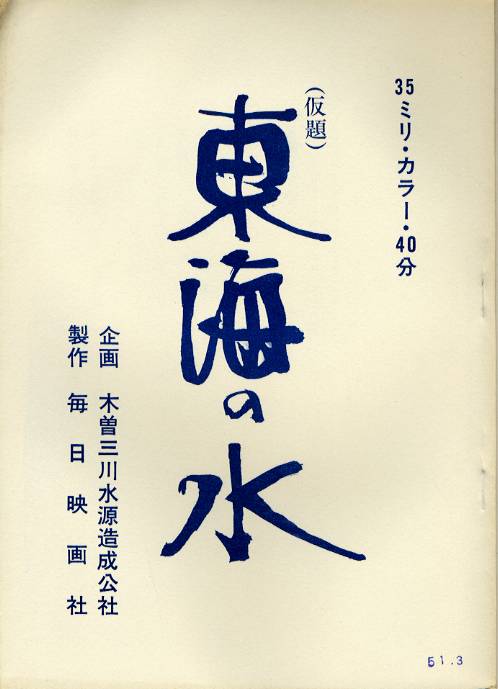 35ミリ・カラー・40分
(仮題)
東海の水
企画 木曽三川水源造成公社
製作 毎日映画社
51.3